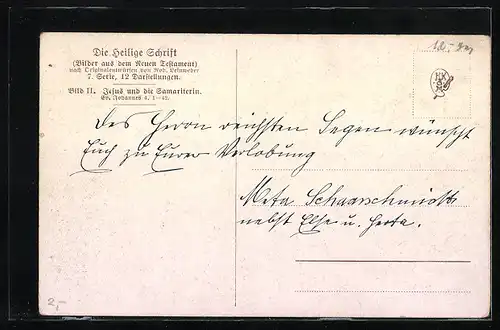 Die Heilige Schrift
(Bilder aus dem Neuen Testament)
nach Originalentwürfen von Rob. Leinweber
7. Serie, 12 Darstellungen.
Bild 11. Jesus und die Samariterin.
Ev. Johannes 4, 1–42.
12.-
Des Herrn reichsten Segen wünscht
Euch zu Eurer Verlobung
Meta Schaarschmidt
nebst Else u. Herta.
2,-